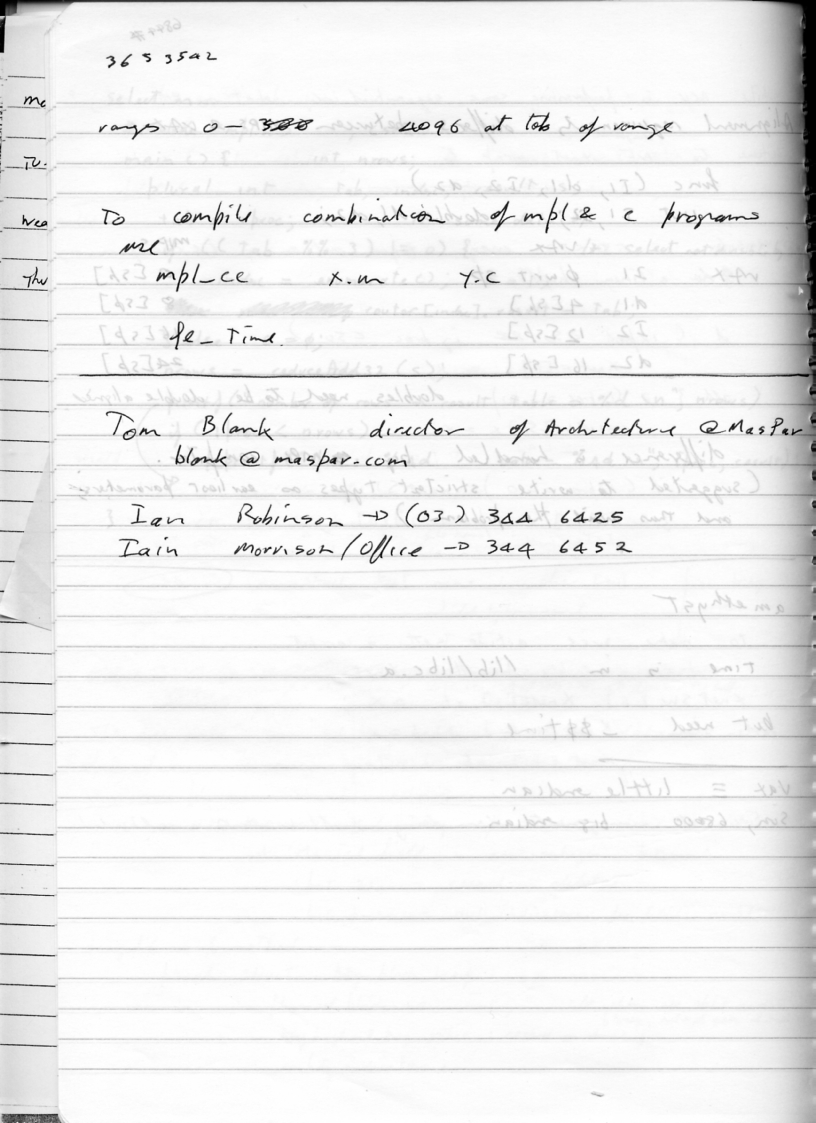 3653542
range 0 - 4096 at top of range
To compile combination of mpl & c programs
use
mpl_cc x.m y.c
fe_Time.
Tom Blank director of Architecture @ MasPar
blank @ maspar.com
Ian Robinson → (03) 344 6425
Iain Morrison / Office → 344 6452